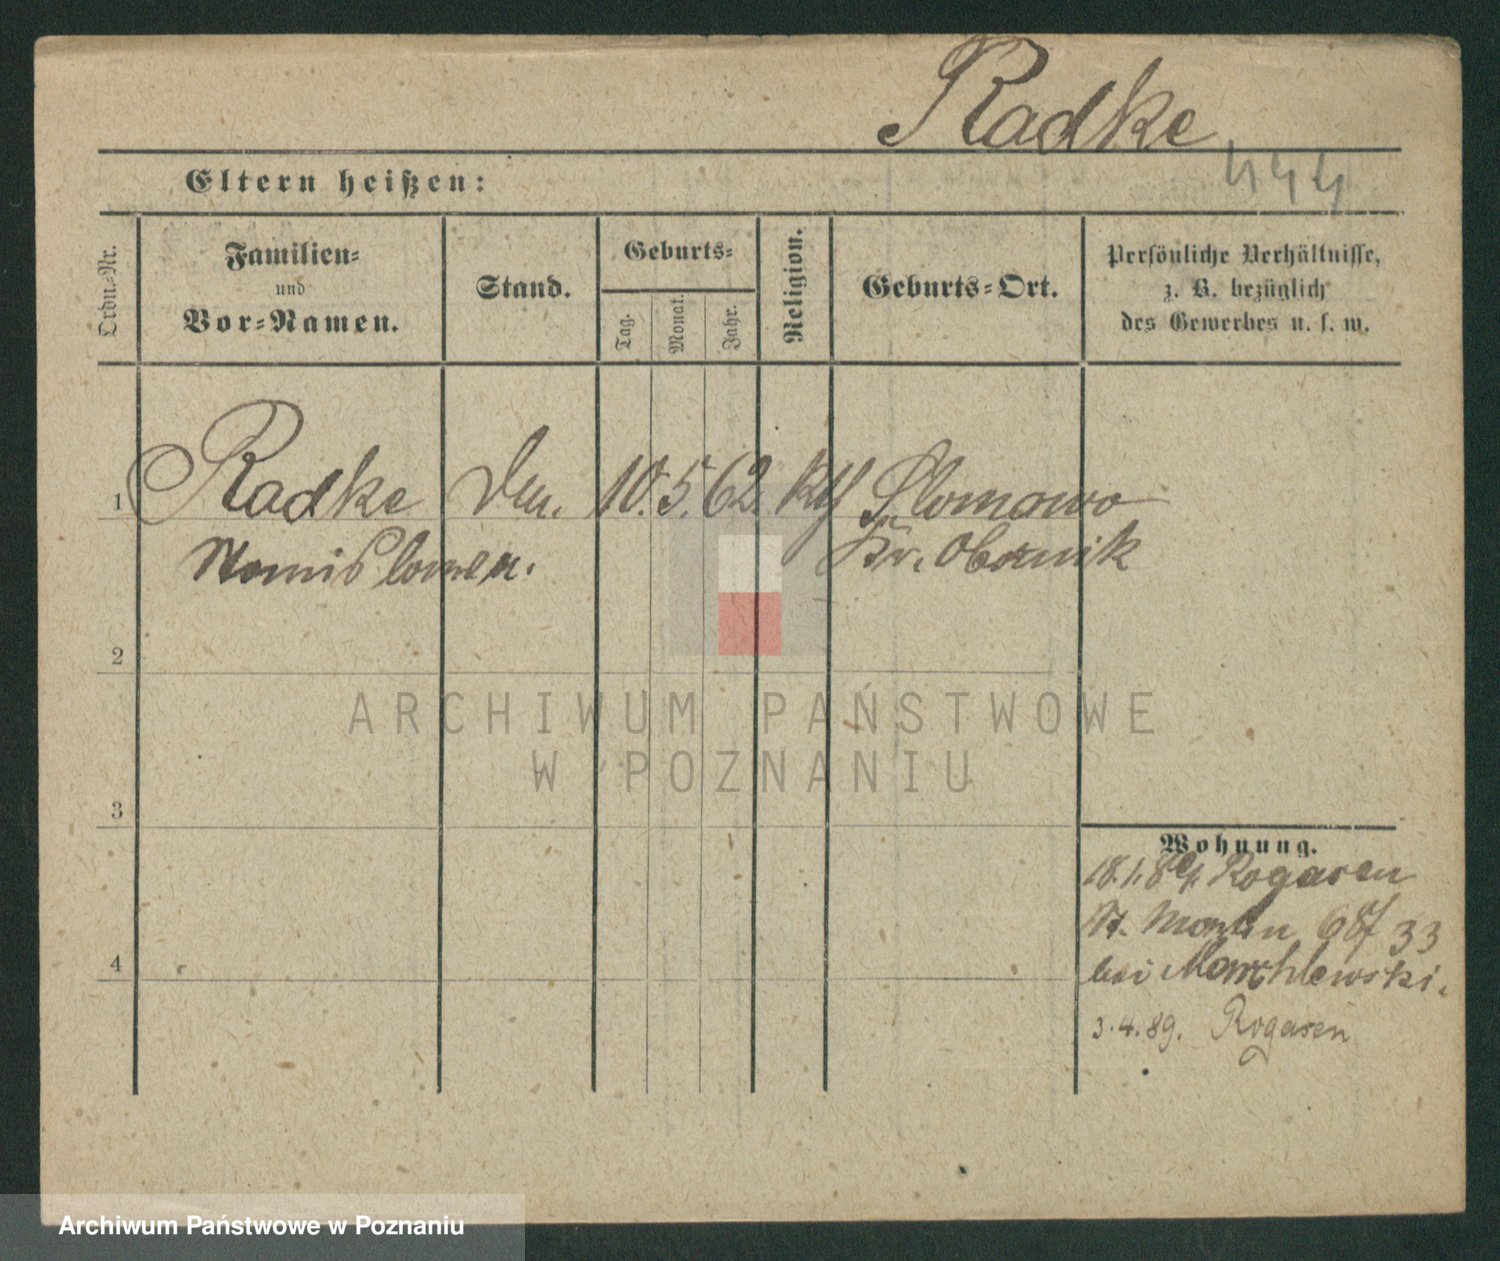 Radke
444
Eltern heißen:
Ordn.-Nr.
Familien-
und
Vor-Namen.
Stand.
Geburts-
Tag.
Monat.
Jahr.
Religion.
Geburts-Ort.
Persönliche Verhältnisse,
z. B. bezüglich
des Gewerbes u. s. w.
1 Radke 10. 5. 62. Slomowo
Kr. Obornik
2
3
4
Wohnung.
18.1.89. Rogasen
St. Martin 33
bei Marchlewski.
3.4.89. Rogasen
ARCHIWUM PAŃSTWOWE
W POZNANIU
Archiwum Państwowe w Poznaniu